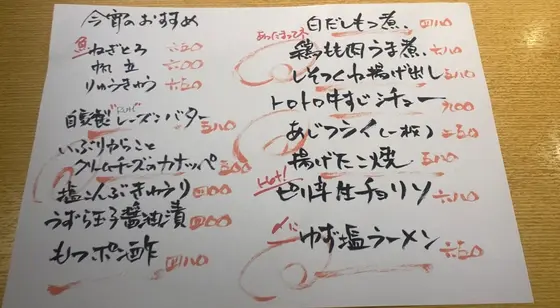 今宵のおすすめ
魚 ねぎとろ 六五〇
帆立 六〇〇
りゅうきゅう 六五〇
自家製レーズンバター 五八〇
いぶりがっこと
クリームチーズのカナッペ 五〇〇
塩こんぶきゅうり 四〇〇
うずら玉子醤油漬 四〇〇
もつポン酢 四八〇
白だしもつ煮 四八〇
あったまってネ
鶏もも肉うま煮 七八〇
しそつくね揚げ出し
トロトロ牛すじシチュー
あじフライ(一枚) 二五〇
揚げたこ焼 五八〇
Hot! ピリ辛生チョリソ 六八〇
〆に ゆず塩ラーメン 六五〇